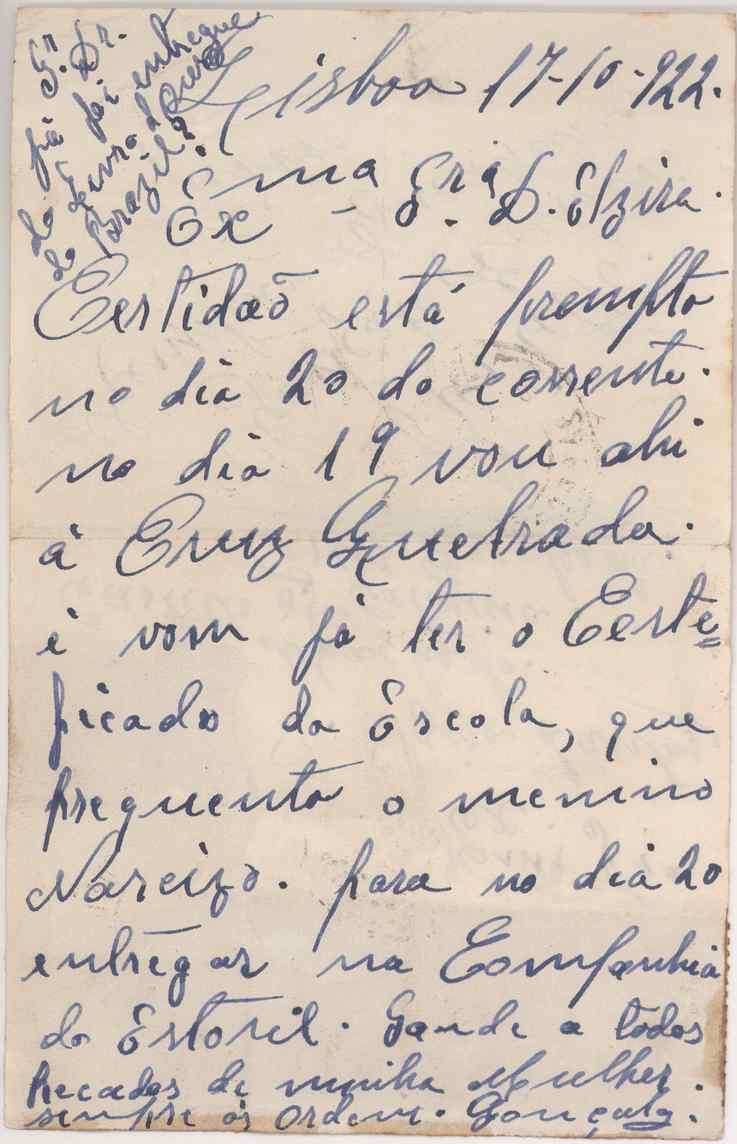 Sr. Dr.
já foi entregue
do Livro do
do Brazil?
Lisboa 17-10-922.
Exma Sra D. Elzira.
Certidaõ está prompta
no dia 20 do corrente.
no dia 19 vou ahi
á Cruz Quebrada.
é vom já ter o Certe=
ficado da Escola, que
frequenta o menino
Narcizo. para no dia 20
entregar na Companhia
do Estoril. Saude a todos
Recados de minha Mulher.
sempre ás Ordem. Gonçalz.